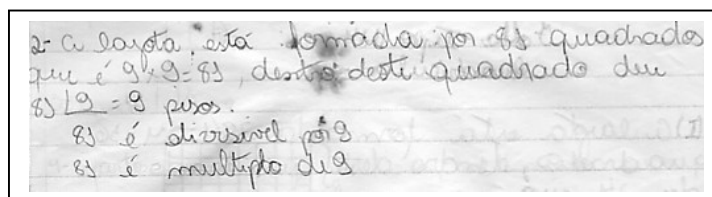 2- A lajota, está formada, por 81 quadrados
que é 9x9=81, dentro deste quadrado deu
81 |9 = 9 pisos.
81 é divisivel por 9
81 é multiplo de 9